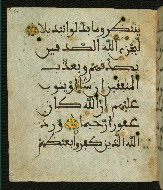 ينتظر وما بدلوا تبديلا
ليجزي الله الصدقين
بصدقهم ويعذب
المنفقين إن شاء أو يتوب
عليهم إن الله كان
غفورا رحيما ورد
الله الذين كفروا بغيظهم